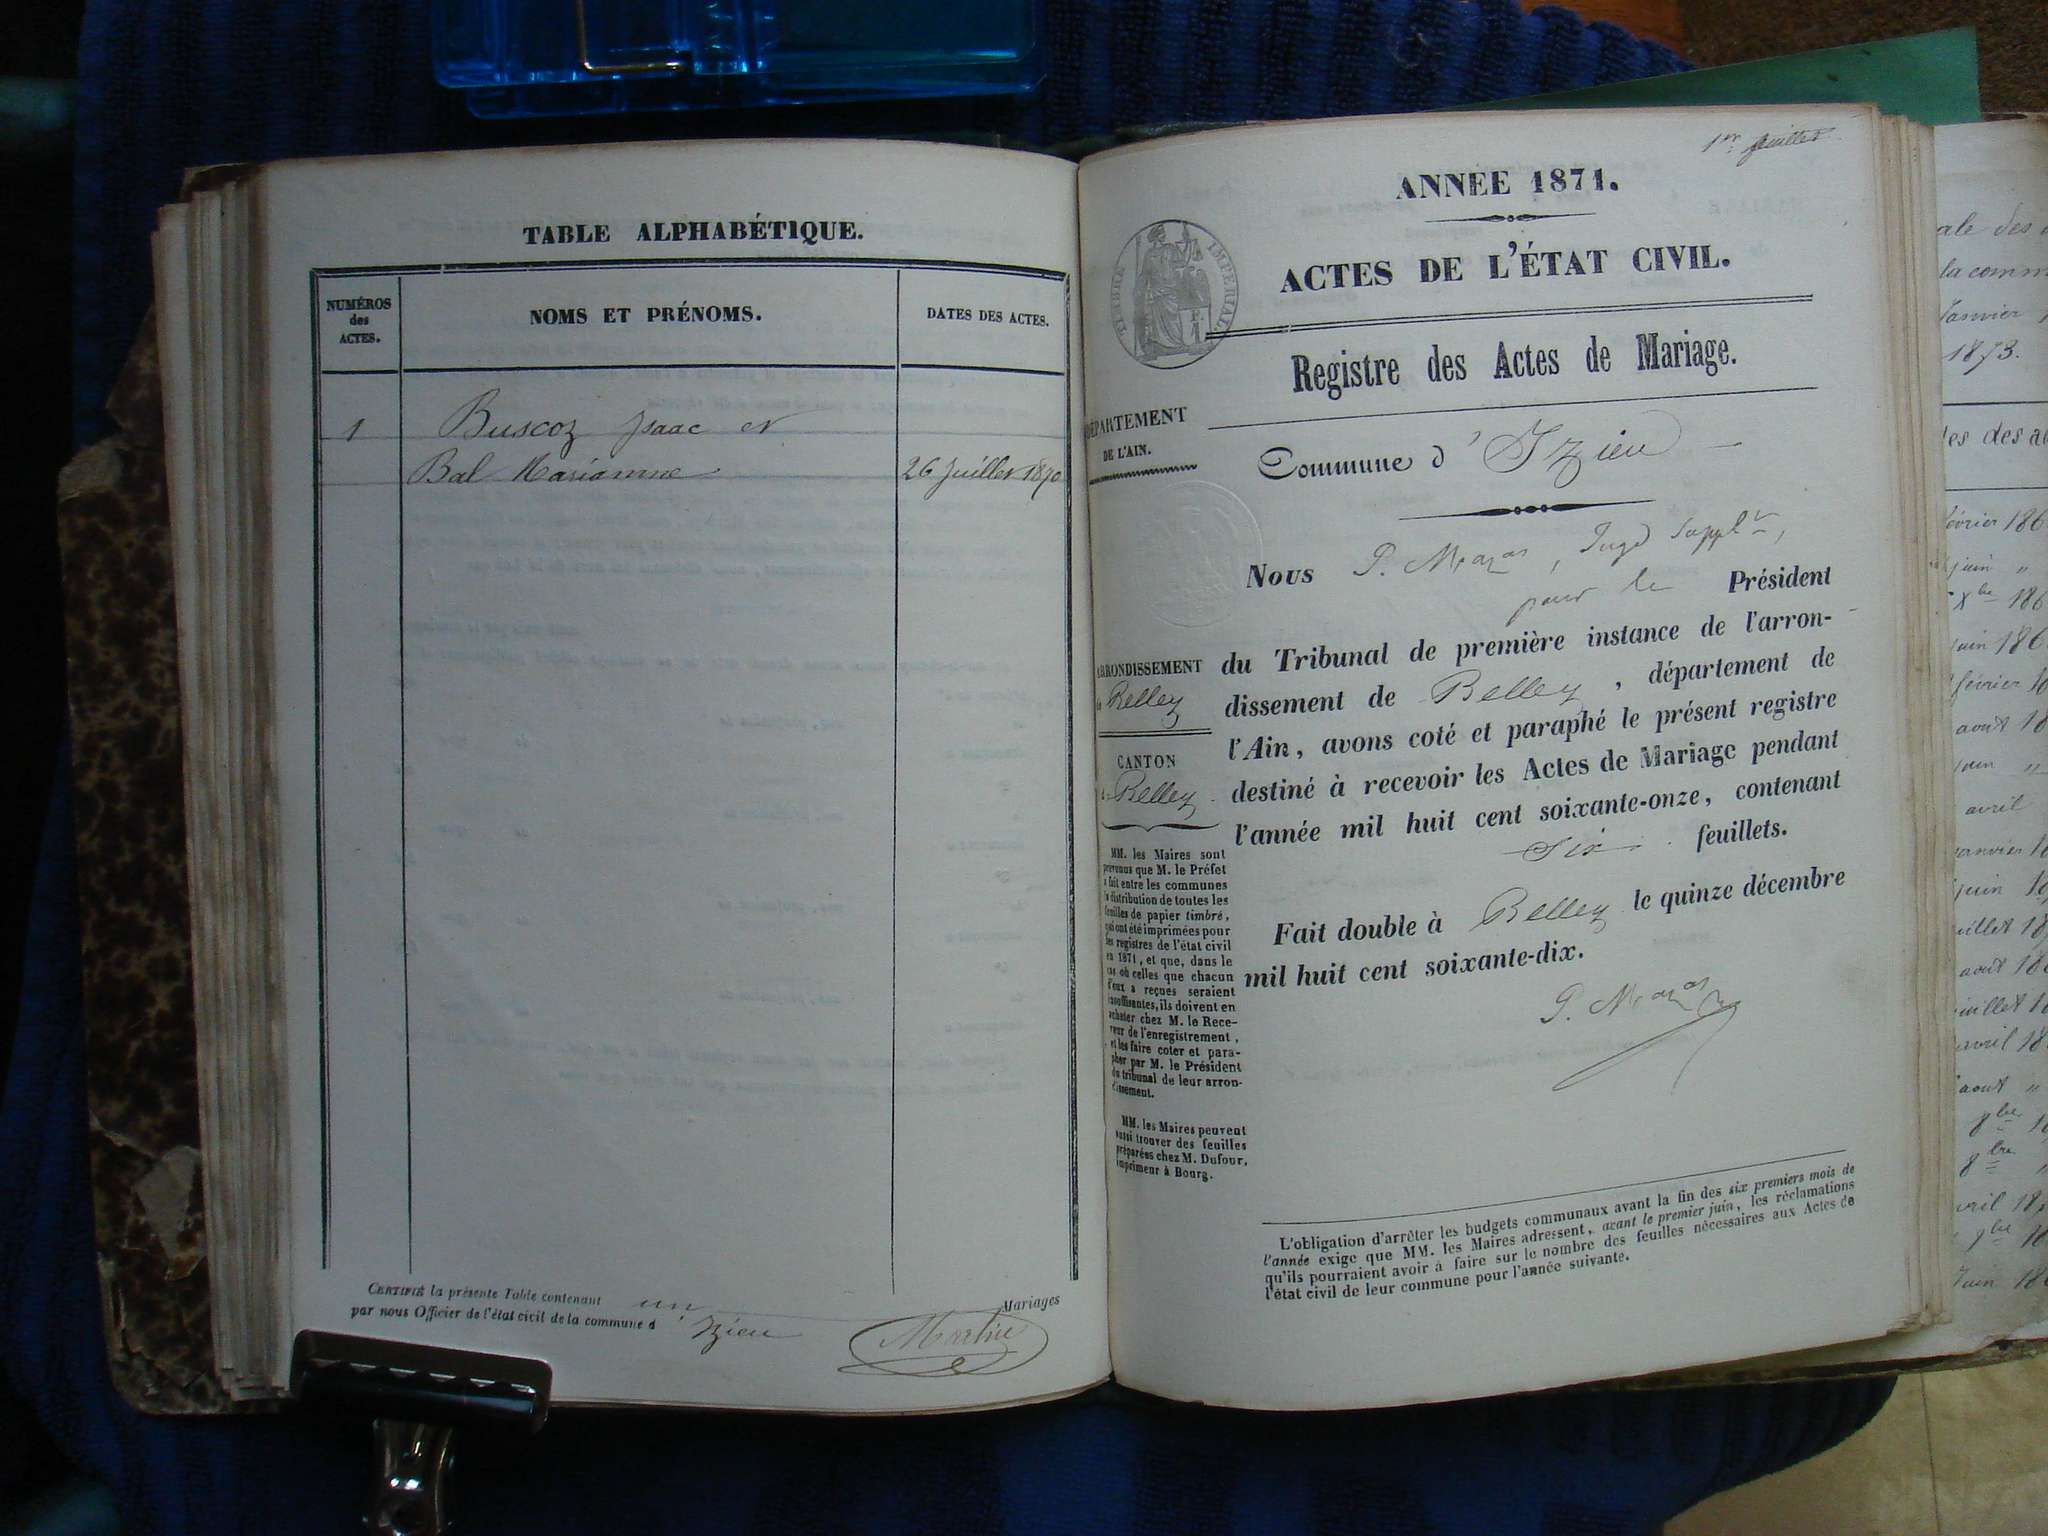 TABLE ALPHABÉTIQUE.
NUMÉROS
des
ACTES.
NOMS ET PRÉNOMS.
DATES DES ACTES.
1 Buscoz Isaac et
Bal Marianne 26 Juillet 1870
CERTIFIÉ la présente Table contenant un Mariages
par nous Officier de l'état civil de la commune d'Izieu
Martin
1er feuillet
ANNÉE 1871.
ACTES DE L'ÉTAT CIVIL.
TIMBRE IMPÉRIAL
Registre des Actes de Mariage.
DÉPARTEMENT
DE L'AIN.
Commune d'Izieu
Nous P. Mazas, Juge Supplt,
pour le Président
du Tribunal de première instance de l'arron-
dissement de Belley, département de
l'Ain, avons coté et paraphé le présent registre
destiné à recevoir les Actes de Mariage pendant
l'année mil huit cent soixante-onze, contenant
Six feuillets.
Fait double à Belley le quinze décembre
mil huit cent soixante-dix.
ARRONDISSEMENT
de Belley
CANTON
de Belley
MM. les Maires sont
prévenus que M. le Préfet
a fait entre les communes
la distribution de toutes les
feuilles de papier timbré,
qui ont été imprimées pour
les registres de l'état civil
en 1871, et que, dans le
cas où celles que chacun
d'eux a reçues seraient
insuffisantes, ils doivent en
acheter chez M. le Rece-
veur de l'enregistrement,
et les faire coter et para-
pher par M. le Président
du tribunal de leur arron-
dissement.
MM. les Maires peuvent
aussi trouver des feuilles
préparées chez M. Dufour,
imprimeur à Bourg.
L'obligation d'arrêter les budgets communaux avant la fin des six premiers mois de
l'année exige que MM. les Maires adressent, avant le premier juin, les réclamations
qu'ils pourraient avoir à faire sur le nombre des feuilles nécessaires aux Actes de
l'état civil de leur commune pour l'année suivante.
la comm
Janvier
1873.